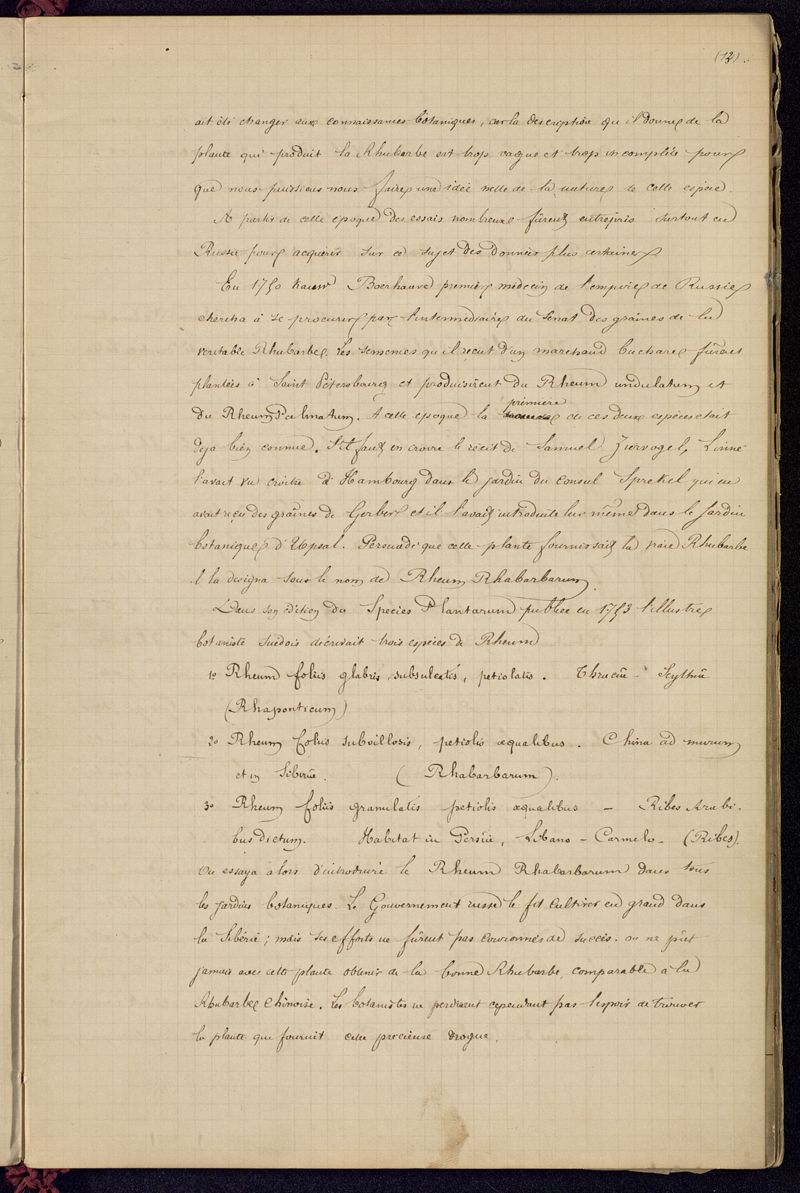 (12).
ait été changer aux connaissances botaniques, car la description qu'il donne de la
plante qui produit la Rhubarbe est trop vague et trop incomplète pour
que nous puissions nous faire une idée nette de la nature de cette espèce.
A partir de cette epoque des essais nombreux fûrent entrepris surtout en
Russie pour acquérir sur ce sujet des données plus certaines
En 1750 Kauw Boerhaave premier médecin de l'empire de Russie
chercha à se procurer par l'intermédiaire du Senat des graines de la
veritable Rhubarbe. Les semences qu'il reçut d'un marchand buchare fûrent
plantées à Saint Pétersbourg et produisirent du Rheum undulatum et
du Rheum Palmatum. A cette epoque la première de ces deux espèces etait
deja bien connue. S'il faut en croire le récit de Samuel Ziervogel, Linné
l'avait vu croître à Hambourg dans le jardin du Consul Sprekel qui en
avait reçu des graines de Gerber et il l'avait introduite lui même dans le Jardin
botanique d'Upsal. Persuadé que cette plante fournissait la vraie Rhubarbe
il la designa sous le nom de Rheum Rhabarbarum.
Dans son édition du Species Plantarum publiée en 1753 l'illustre
botaniste suédois décrivait trois espèces de Rheum
1º Rheum foliis glabris, subsulcatis, petiolatis. Thraciæ - Scythiæ
(Rhaponticum)
2º Rheum foliis subvillosis, petiolis æqualibus. China ad murum
et in Sibiriæ. (Rhabarbarum).
3º Rheum foliis granulatis petiolis æqualibus — Ribes Arabi-
bus dictum. Habitat in Persiæ, Libano - Carmelo - (Ribes).
On essaya alors d'introduire le Rheum Rhabarbarum dans tous
les jardins botaniques. Le Gouvernement russe le fit cultiver en grand dans
la Sibérie; mais ses efforts ne fûrent pas couronnés de succès. on ne pût
jamais avec cette plante obtenir de la bonne Rhubarbe, comparable à la
Rhubarbe Chinoise. Les botanistes ne perdirent cependant pas l'espoir de trouver
la plante que fournit cette precieuse drogue.